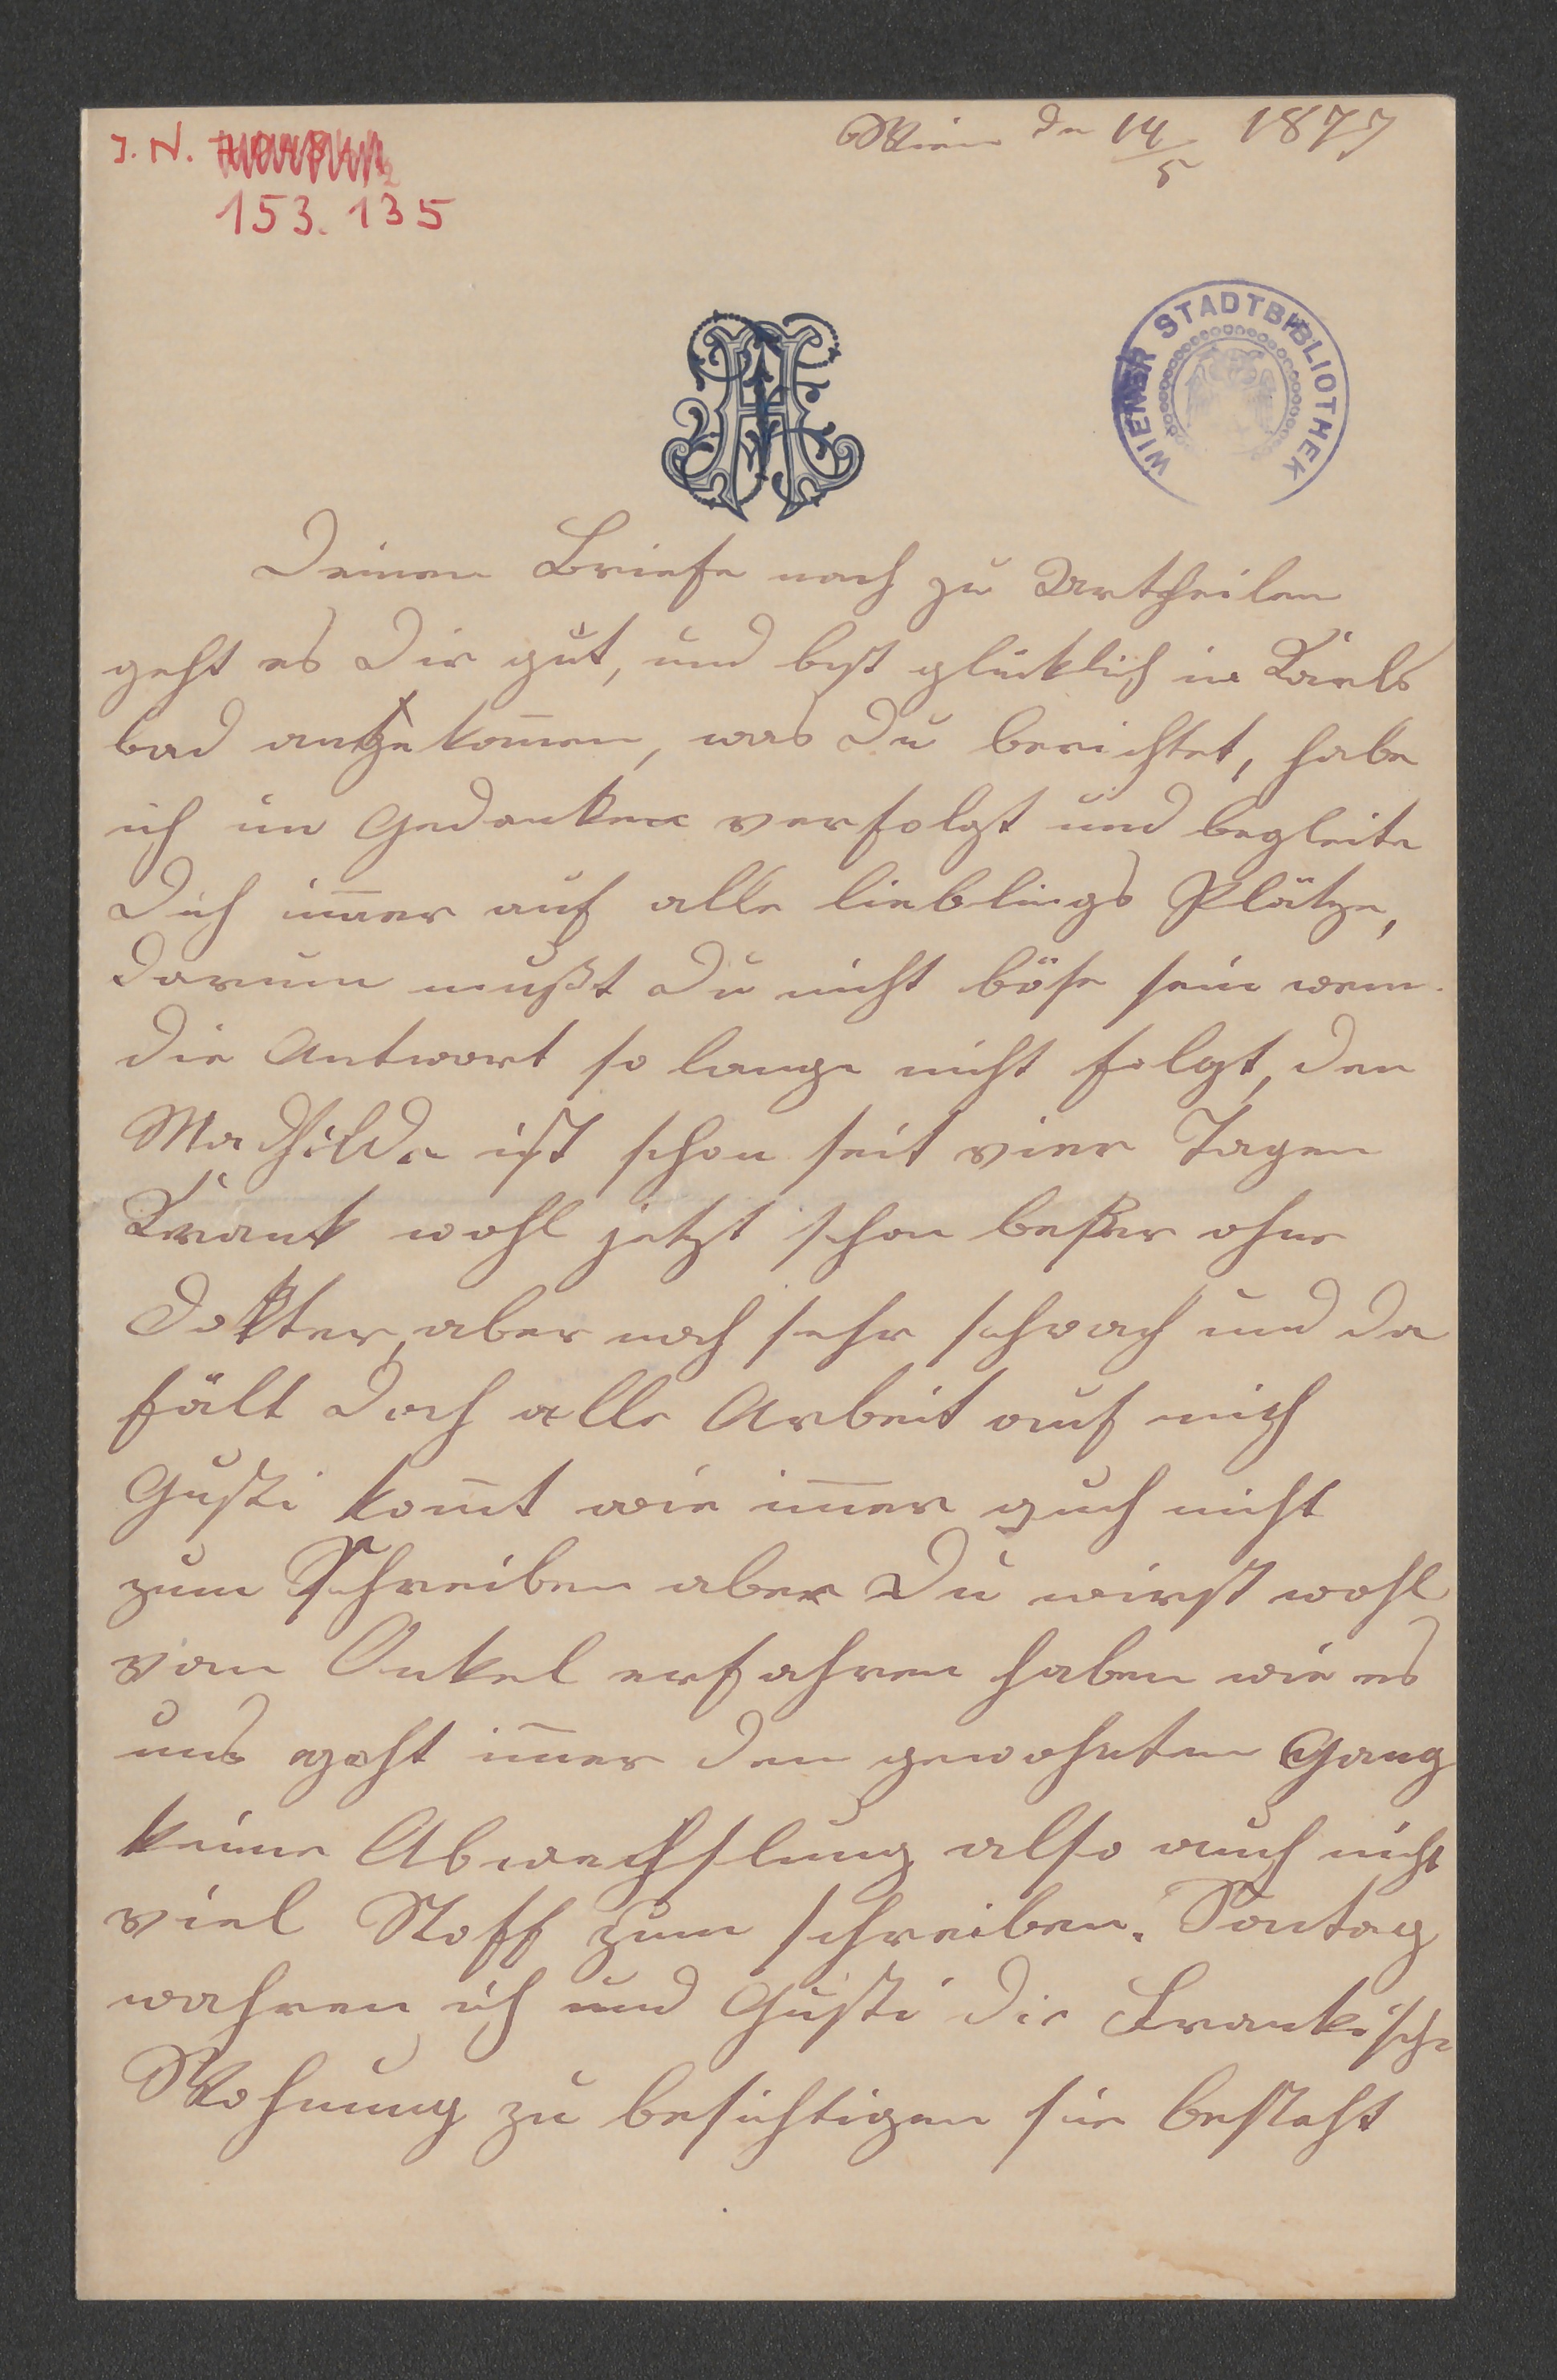 J. N.
153. 135
Wien den 14/5 1877
WIENER STADTBIBLIOTHEK
Deinen Briefe nach zu Urtheilen
geht es Dir gut, und bist glücklich in Karls
bad angekom̄en, was Du berichtet, habe
ich im Gedanken verfolgt und begleite
Dich im̄er auf alle lieblings Plätze,
darum mußt Du nicht böse sein wenn
die Antwort so lange nicht folgt, den
Mathilde ist schon seit vier Tagen
Krank wohl jetzt schon beßer ohne
Dokter, aber noch sehr schwach und da
fält doch alle Arbeit auf mich
Gusti kom̄t wie im̄er auch nicht
zum Schreiben aber Du wirst wohl
von Onkel erfahren haben wie es
uns geht im̄er den gewohnten Gang
keine Abwechslung also auch nicht
viel Stoff zum schreiben. Sontag
wahren ich und Gusti die Frankische
Wohnung zu besichtigen sie besteht